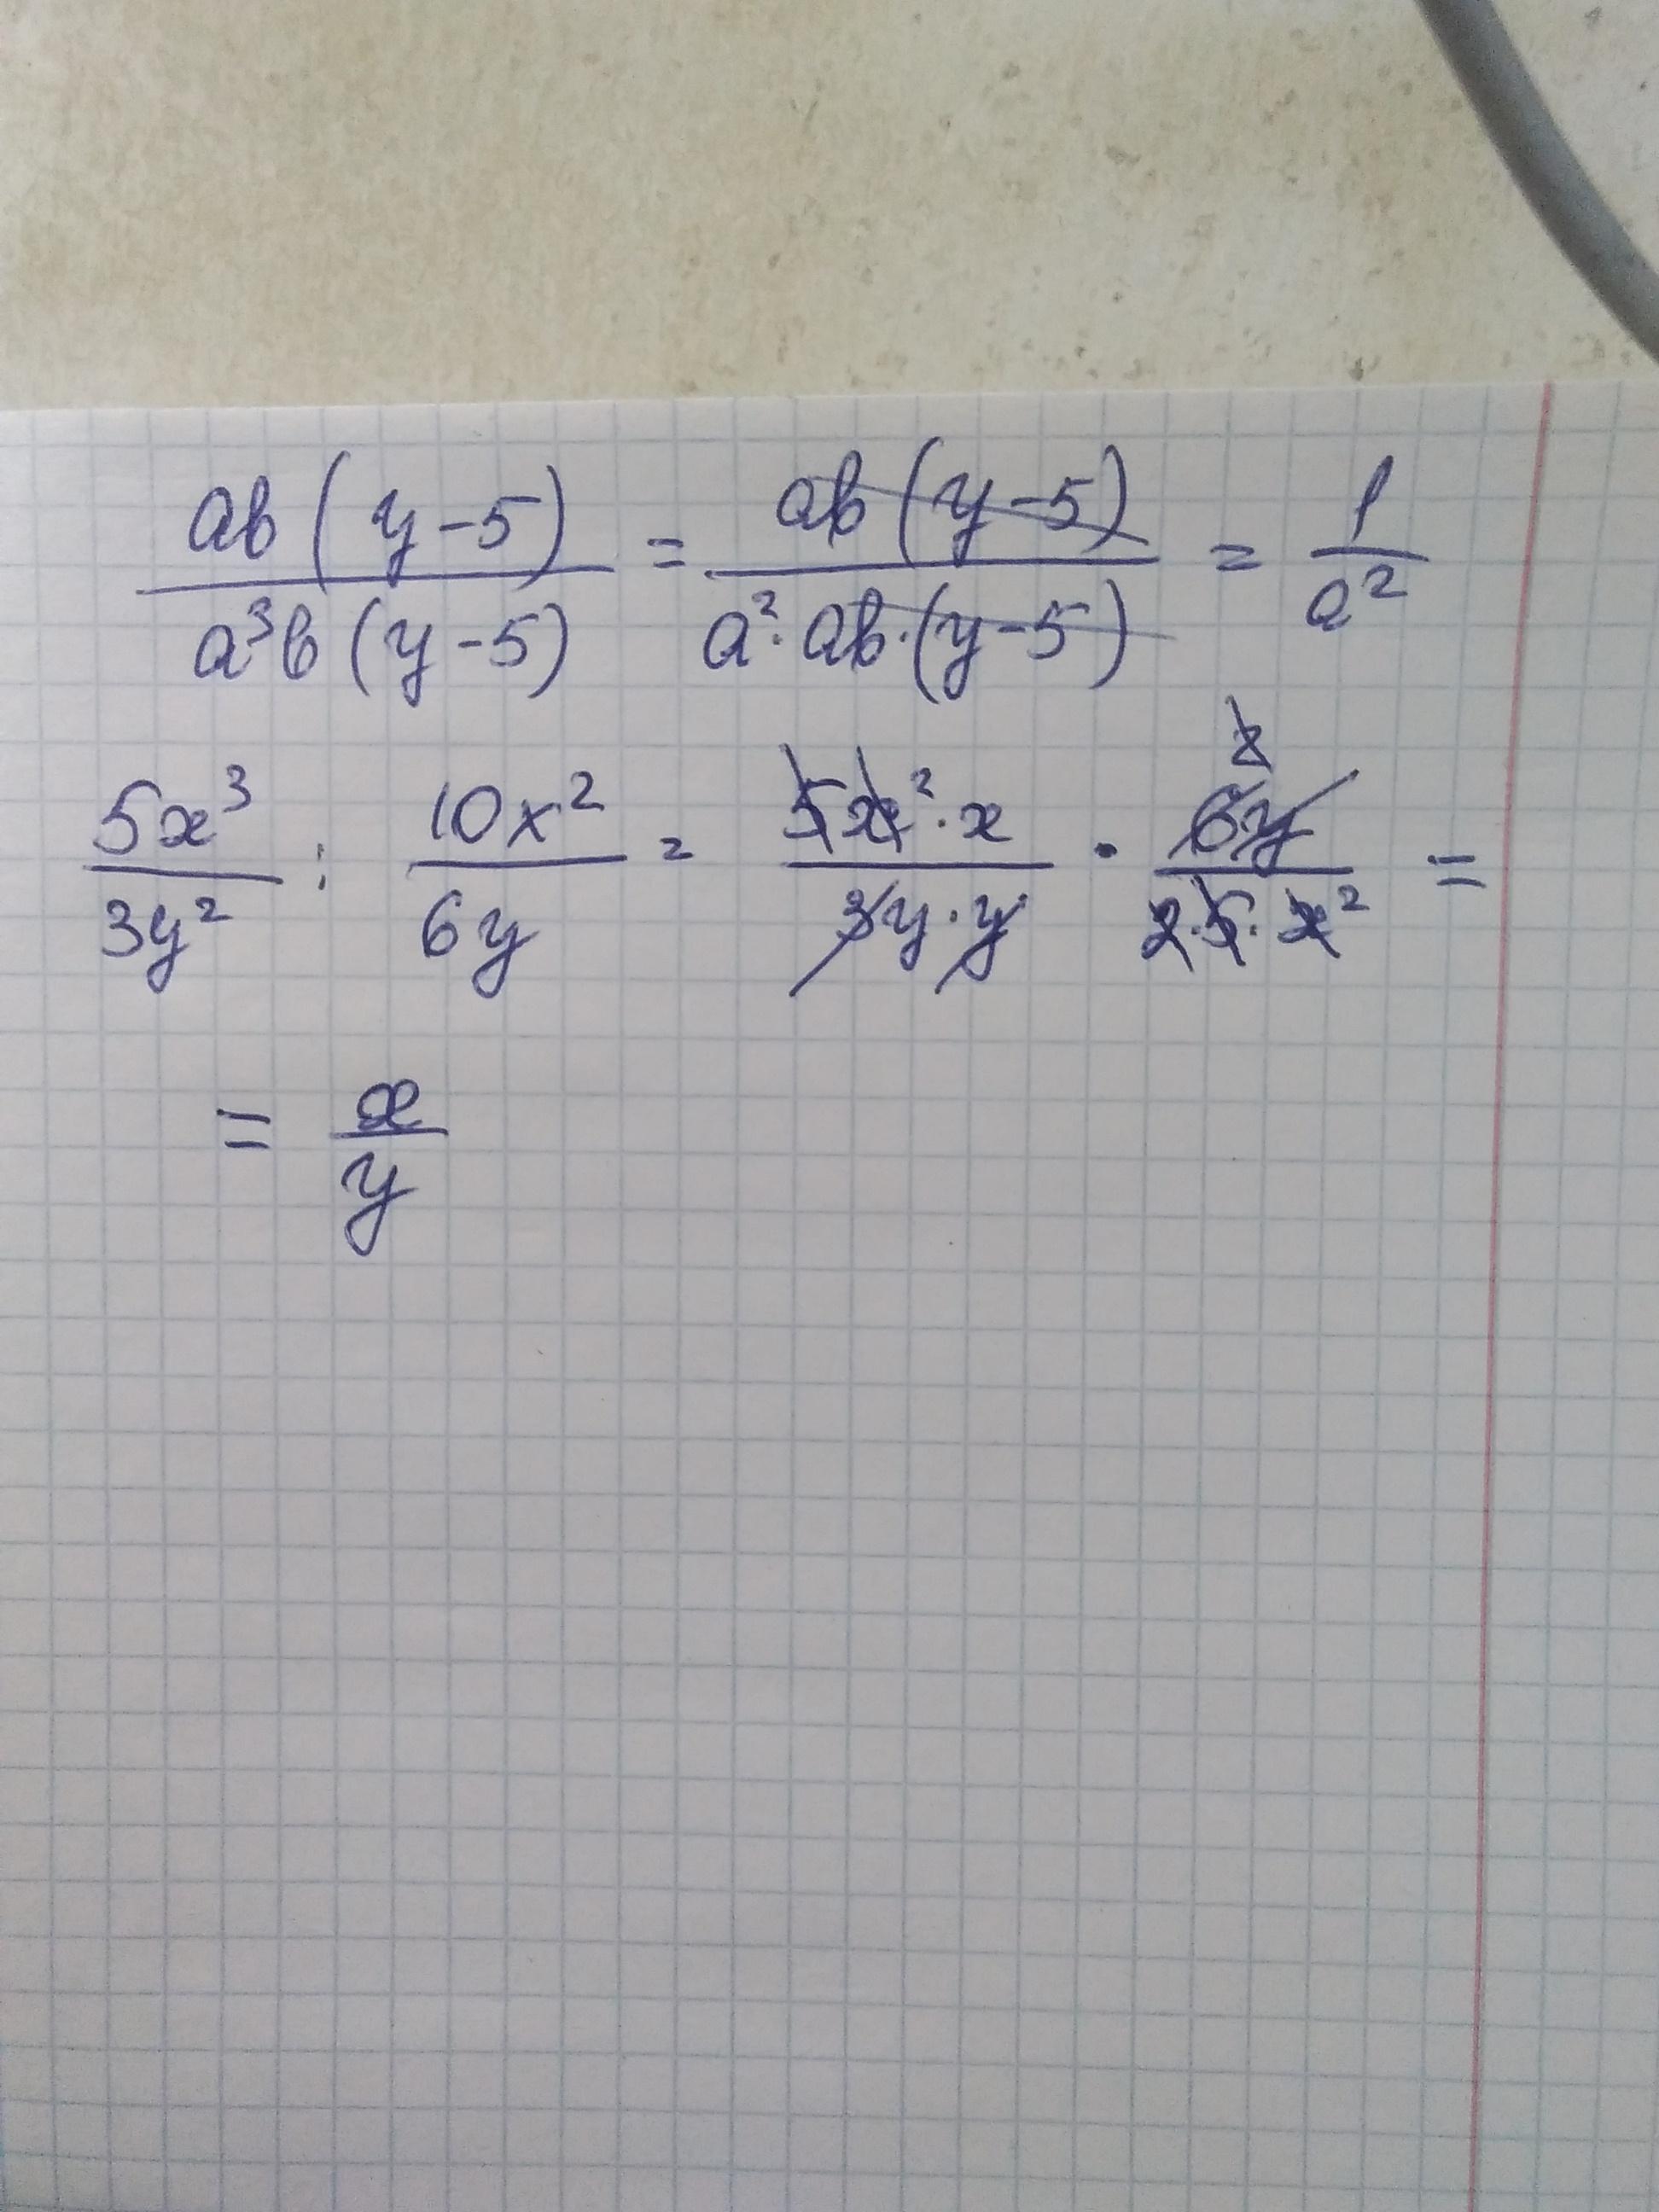 ab(y-5)/a³b(y-5) = ab(y-5)/a²·ab·(y-5) = 1/a²
5x³/3y² : 10x²/6y = 5x²·x/3y·y · 2 6y/2·5·x² =
= x/y